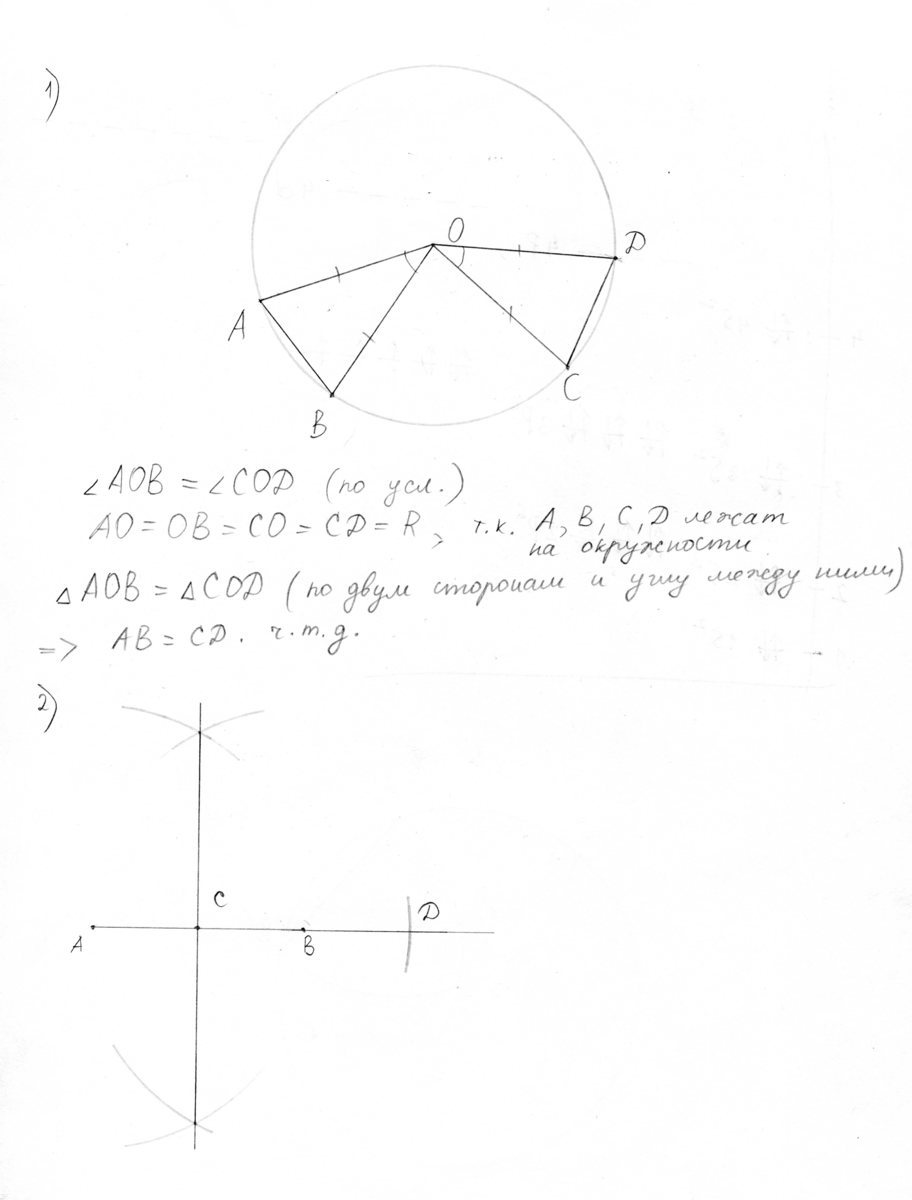 1)
O
D
A
C
B
∠AOB = ∠COD (по усл.)
AO = OB = CO = CD = R, т.к. A, B, C, D лежат
на окружности
△AOB = △COD (по двум сторонам и углу между ними)
=> AB = CD. ч.т.д.
2)
C
D
A
B